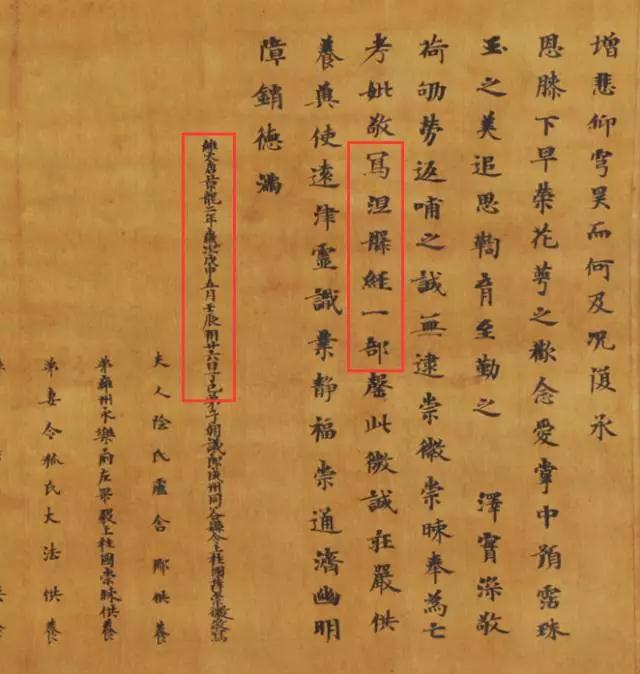 增悲仰穹昊而何及况復承
恩膝下早榮花萼之歡念愛掌中預霑珠
玉之美追思鞠育至勤之 澤實深敬
荷劬勞返哺之誠無逮崇徽崇暕奉為亡
考妣敬寫涅槃經一部罄此微誠庄嚴供
養真使遠津靈識業静福崇通濟幽明
障銷德滿
維大唐景龍二年歲次戊申五月壬辰朔廿六日丁巳弟子朝議郎成州同谷縣令上柱國薛崇徽敬寫
夫人陰氏盧舍那供養
弟雍州永樂府左果毅上柱國崇暕供養
弟妻令狐氏大法供養